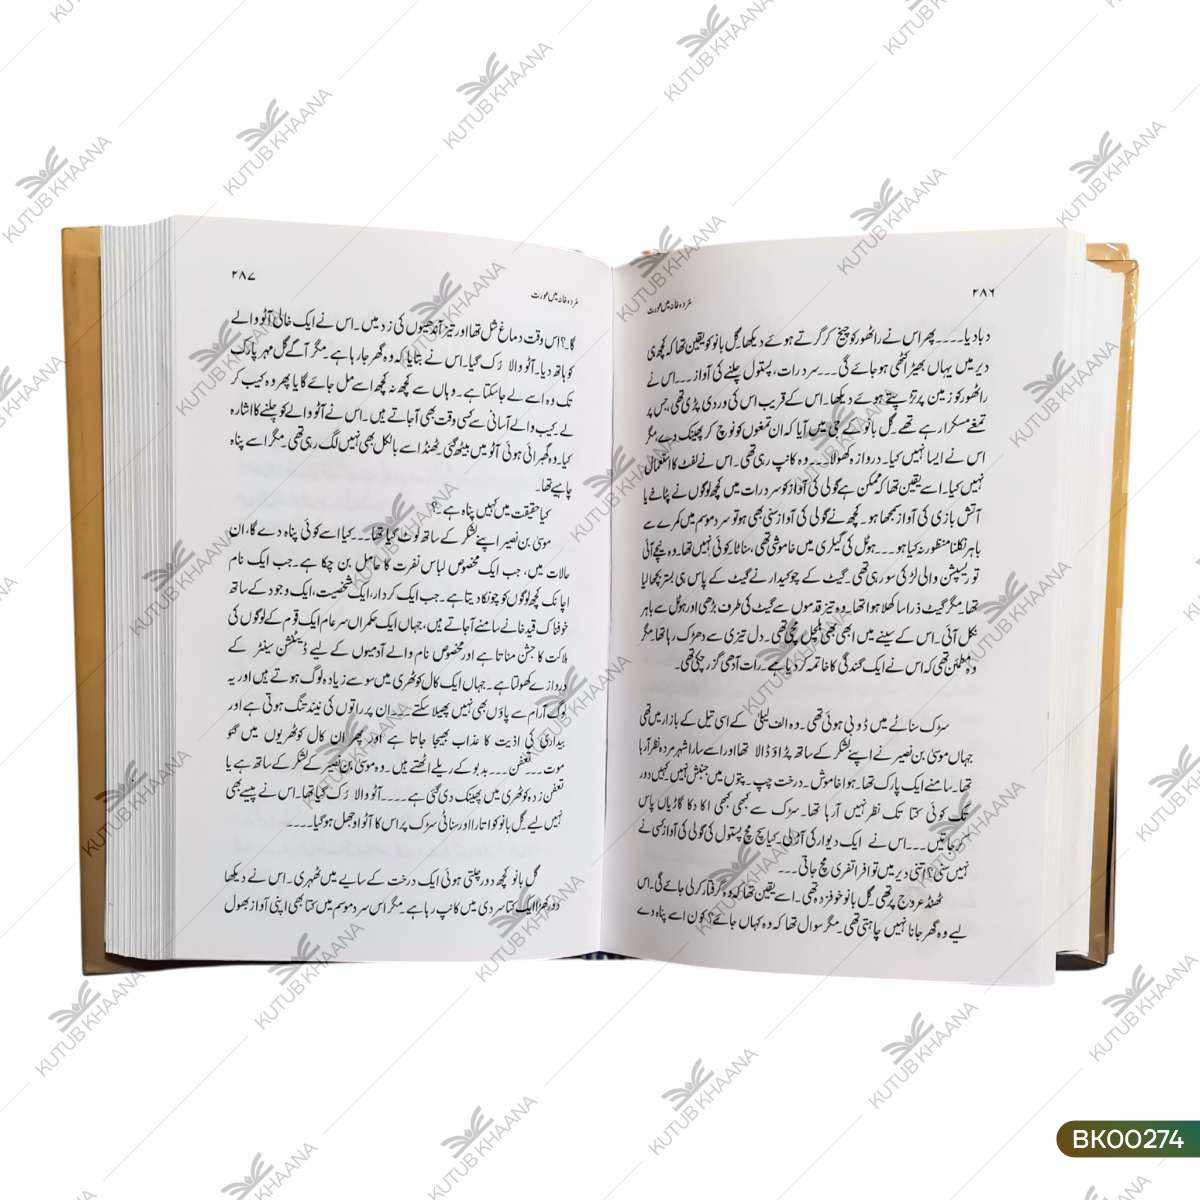 ۲۸۶
مُردہ خانہ میں عورت
دبا دیا۔۔۔۔ پھر اس نے راٹھور کو چیخ کر گرتے ہوئے دیکھا۔ گل بانو کو یقین تھا کہ کچھ ہی
دیر میں یہاں بھیڑ اکٹھی ہو جائے گی۔۔۔ سرد رات، پستول چلنے کی آواز۔۔۔ اس نے
راٹھور کو زمین پر تڑپتے ہوئے دیکھا۔ اس کے قریب اس کی وردی پڑی تھی، جس پر
تمغے مسکرا رہے تھے۔ گل بانو کے جی میں آیا کہ ان تمغوں کو نوچ کر پھینک دے۔ مگر
اس نے ایسا نہیں کیا۔ دروازہ کھولا۔۔۔ وہ کانپ رہی تھی۔ اس نے لفٹ کا استعمال
نہیں کیا۔ اسے یقین تھا کہ ممکن ہے گولی کی آواز کو سرد رات میں کچھ لوگوں نے پٹاخے یا
آتش بازی کی آواز سمجھا ہو۔ کچھ نے گولی کی آواز سنی بھی ہو تو سرد موسم میں کمرے سے
باہر نکلنا منظور نہ کیا ہو۔۔۔ ہوٹل کی گیلری میں خاموشی تھی، سناٹا، کوئی نہیں تھا۔ وہ نیچے آئی
تو ریسپشن والی لڑکی سو رہی تھی۔ گیٹ کے چوکیدار نے گیٹ کے پاس ہی بستر بچھا لیا
تھا۔ مگر گیٹ ذرا سا کھلا ہوا تھا۔ وہ تیز قدموں سے گیٹ کی طرف بڑھی اور ہوٹل سے باہر
نکل آئی۔ اس کے سینے میں ابھی بھی ہلچل مچی تھی۔ دل تیزی سے دھڑک رہا تھا، مگر
وہ مطمئن تھی کہ اس نے ایک گندگی کا خاتمہ کر دیا ہے۔ رات آدھی گزر چکی تھی۔
سڑک سناٹے میں ڈوبی ہوئی تھی۔ وہ الف لیلیٰ کے اسی تیل کے بازار میں تھی
جہاں موسیٰ بن نصیر نے اپنے لشکر کے ساتھ پڑاؤ ڈالا تھا اور اسے سارا شہر مردہ نظر آ رہا
تھا۔ سامنے ایک پارک تھا۔ ہوا خاموش۔ درخت چپ۔ پتوں میں جنبش نہیں۔ کہیں دور
تک کوئی کتا تک نظر نہیں آ رہا تھا۔ سڑک سے کبھی کبھی اکا دکا گاڑیاں پاس
کر جاتیں۔۔۔ اس نے ایک دیوار کی آڑ لی۔ کیا سچ مچ پستول کی گولی کی آواز کسی نے
نہیں سنی؟ اتنی دیر میں تو افراتفری مچ جاتی۔۔۔
ٹھنڈ عروج پر تھی۔ گل بانو خوفزدہ تھی۔ اسے یقین تھا کہ وہ گرفتار کر لی جائے گی۔ اس
لیے وہ گھر جانا نہیں چاہتی تھی۔ مگر سوال تھا کہ وہ کہاں جائے؟ کون اسے پناہ دے
۲۸۷
مُردہ خانہ میں عورت
گا۔؟ اس وقت دماغ شل تھا اور تیز آندھیوں کی زد میں۔ اس نے ایک خالی آٹو والے
کو ہاتھ دیا۔ آٹو والا رک گیا۔ اس نے بتایا کہ وہ گھر جا رہا ہے۔ مگر آگے گل مہر پارک
تک وہ اسے لے جا سکتا ہے۔ وہاں سے کچھ نہ کچھ اسے مل جائے گا یا پھر وہ کیب کر
لے۔ کیب والے آسانی سے کسی وقت بھی آ جاتے ہیں۔ اس نے آٹو والے کو چلنے کا اشارہ
کیا۔ وہ گھبرائی ہوئی آٹو میں بیٹھ گئی۔ ٹھنڈا اسے بالکل بھی نہیں لگ رہی تھی۔ مگر اسے پناہ
چاہیے تھا۔
کیا حقیقت میں کہیں پناہ ہے۔؟
موسیٰ بن نصیر اپنے لشکر کے ساتھ لوٹ گیا تھا۔۔۔ کیا اسے کوئی پناہ دے گا، ان
حالات میں، جب ایک مخصوص لباس نفرت کا حامل بن چکا ہے۔ جب ایک نام
اچانک کچھ لوگوں کو چونکا دیتا ہے۔ جب ایک کردار، ایک شخصیت، ایک وجود کے ساتھ
خوفناک قید خانے سامنے آ جاتے ہیں، جہاں ایک حکمراں سرعام ایک قوم کے لوگوں کی
ہلاکت کا جشن مناتا ہے اور مخصوص نام والے آدمیوں کے لیے ڈیٹنشن سینٹر کے
دروازے کھولتا ہے۔ جہاں ایک کال کوٹھری میں سو سے زیادہ لوگ ہوتے ہیں اور یہ
لوگ آرام سے پاؤں بھی نہیں پھیلا سکتے۔۔۔ ان پر راتوں کی نیند تنگ ہوتی ہے اور
بیداری کی اذیت کا عذاب بھیجا جاتا ہے اور پھر ان کال کوٹھریوں میں
موت۔۔۔ تعفن۔۔۔ بدبو کے ریلے اٹھتے ہیں۔ وہ موسیٰ بن نصیر کے لشکر کے ساتھ ہے یا
تعفن زدہ کوٹھری میں پھینک دی گئی ہے۔۔۔۔ آٹو والا رک گیا تھا۔ اس نے پیسے بھی
نہیں لیے۔ گل بانو کو اتارا اور سنائی سڑک پر اس کا آٹو اوجھل ہو گیا۔۔۔۔
گل بانو کچھ دور چلتی ہوئی ایک درخت کے سایے میں ٹھہری۔ اس نے دیکھا
دور کھڑا ایک کتا سردی میں کانپ رہا ہے۔ مگر اس سرد موسم میں کتا بھی اپنی آواز بھول
KUTUB KHAANA
BK00274